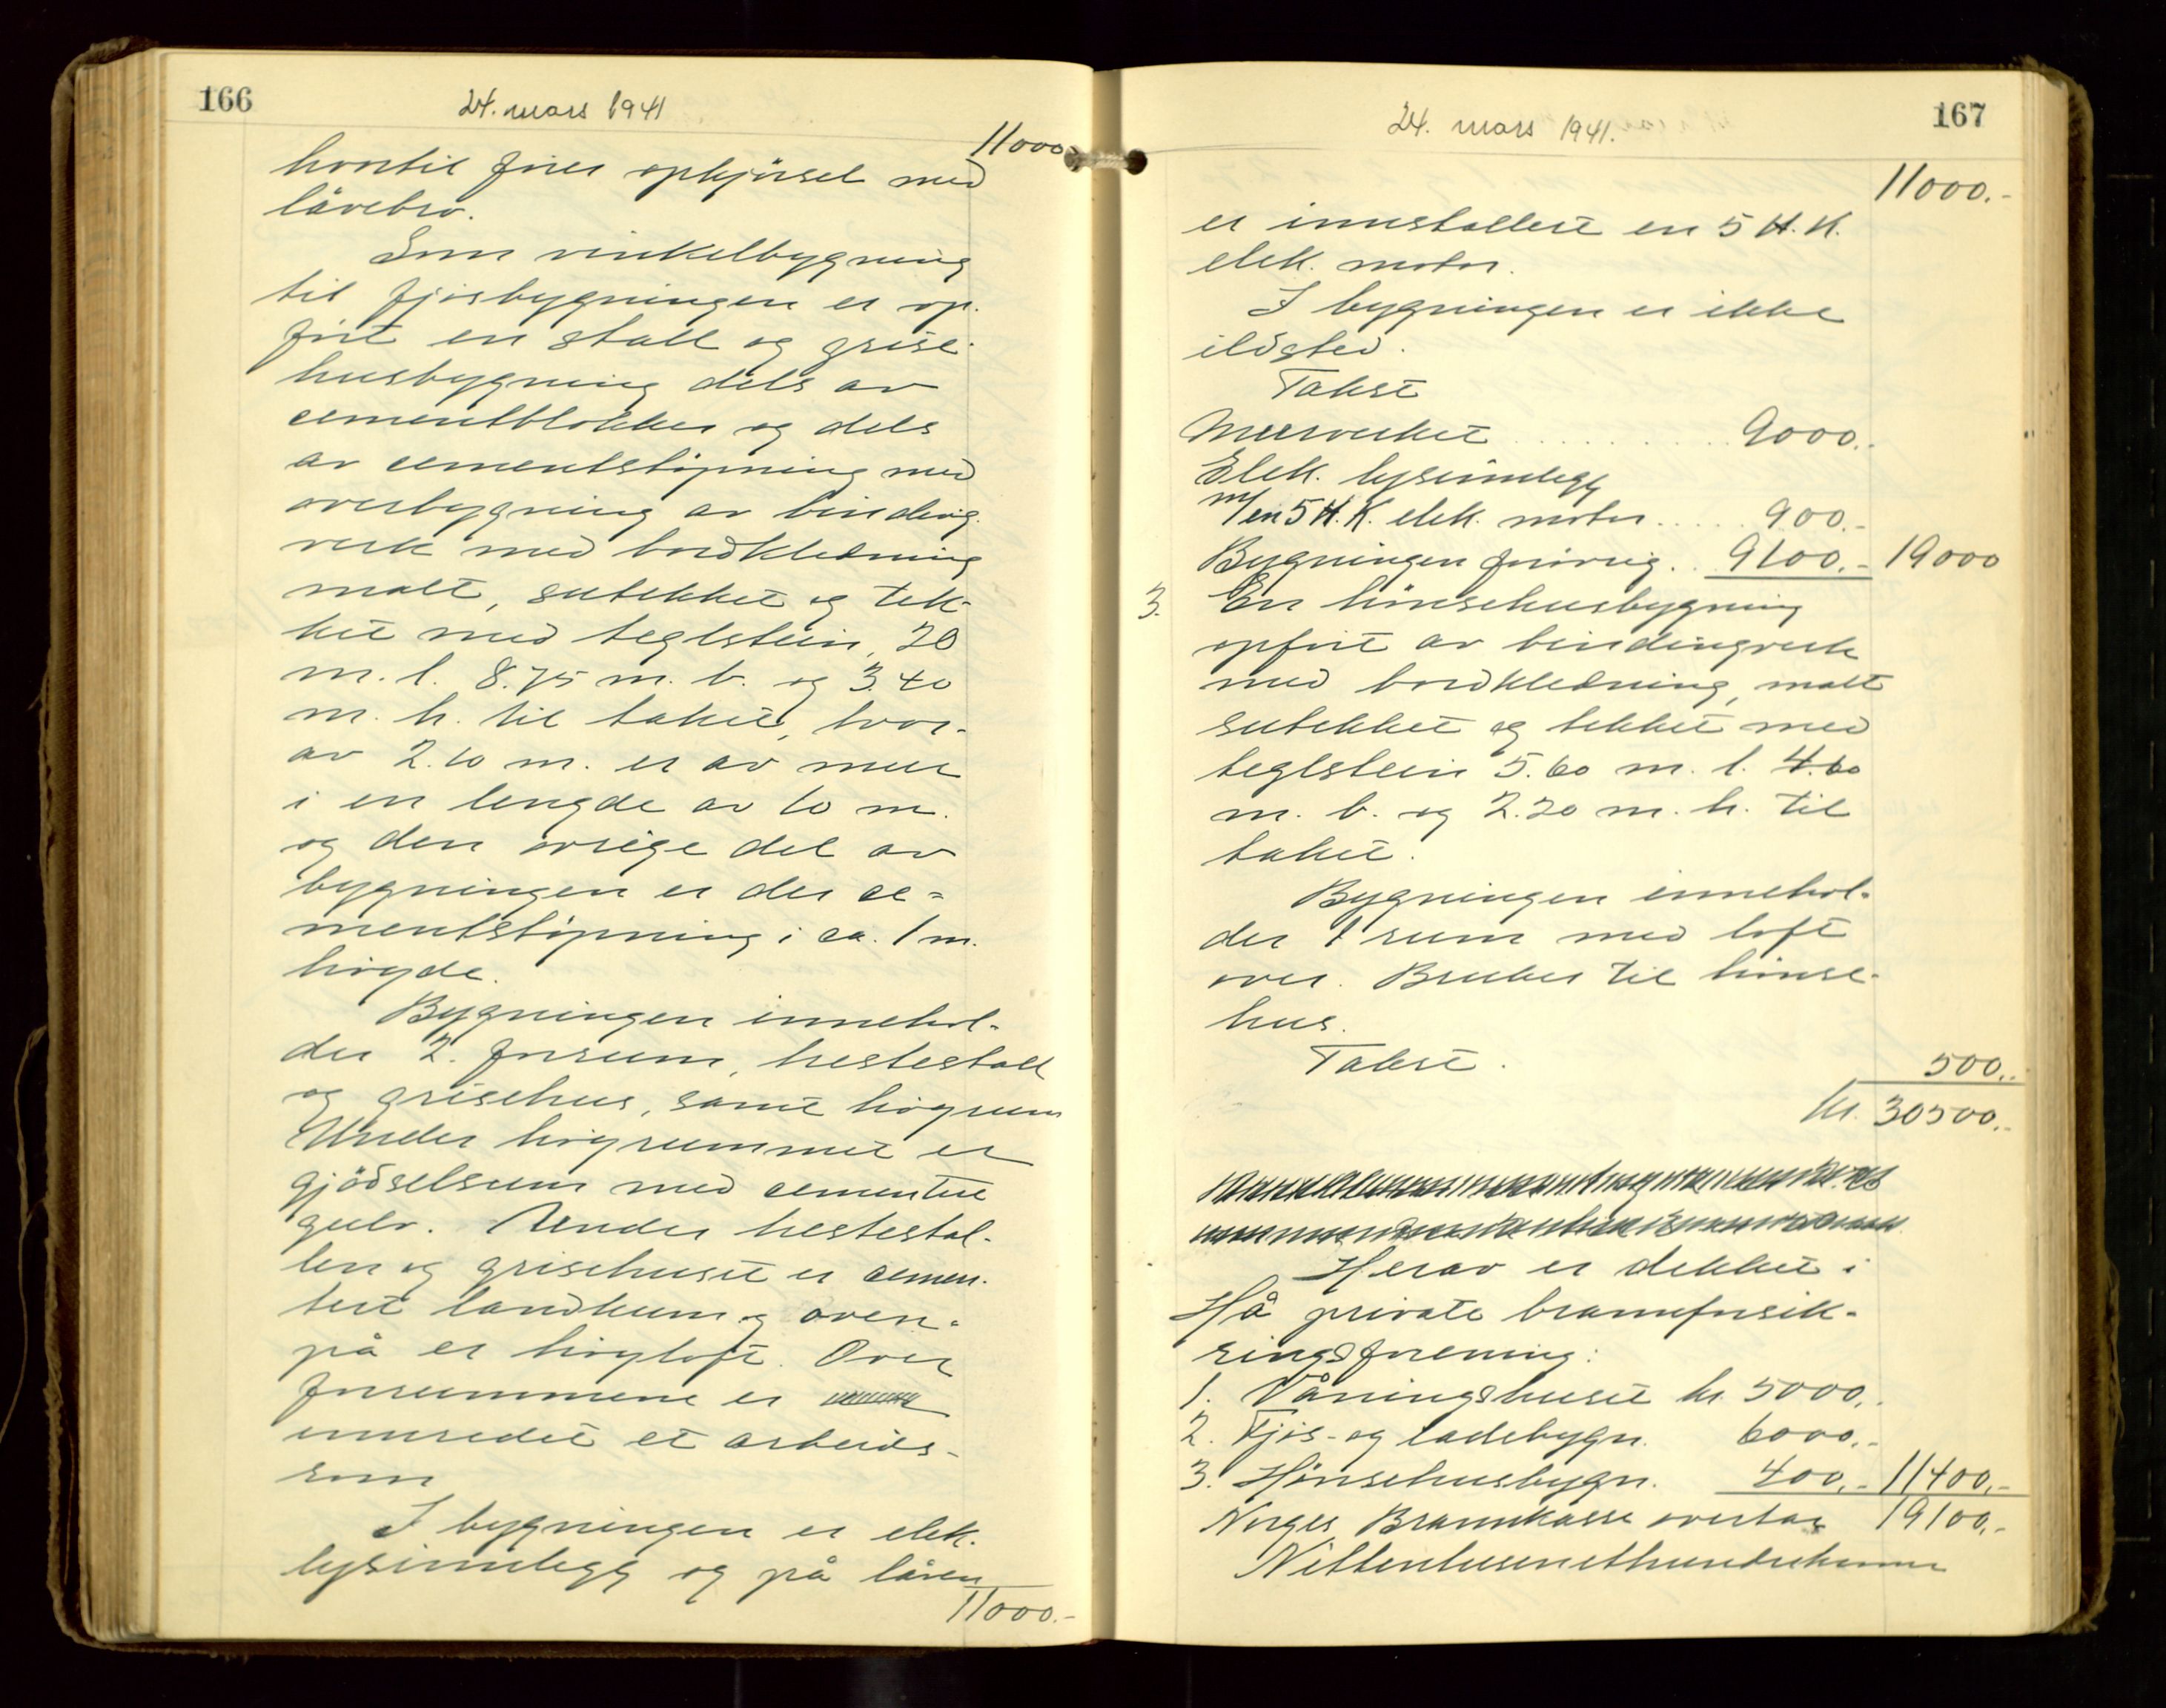 166
24. mars 1941
11000
hvortil fører opkjörsel med
låvebro.
Som vinkelbygning
til fjøsbygningen er op-
ført en stall og grise-
husbygning dels av
cementblokker og dels
av cementstøpning med
overbygning av bindings-
verk med bordkledning
malt, sutekket og tek-
ket med teglstein, 20
m. l. 8.75 m. b. og 3.40
m. h. til taket, hvor-
av 2.10 m. er av mur
i en lengde av 10 m.
og den øvrige del av
bygningen er der ce=
mentstøpning i ca. 1 m.
høyde.
Bygningen innehol-
der 2. forrum, hestestall
og grisehus, samt høyrum
Under høyrummet er
gjödselrum med cementert
gulv. Under hestestal-
len og grisehuset er cemen-
tert landkum og oven-
på er høyloft. Over
forrummene er
innredet et arbeids-
rom
I bygningen er elek.
lysinnlegg og på låven
11000.-
167
24. mars 1941.
11000.-
er innstallert en 5 H.K.
elek. motor.
I bygningen er ikke
ildsted.
Takst
Murverket ......... 9000.-
Elek. lysinnlegg
m/en 5 H.K. elek. motor..... 900.-
Bygningen forøvrig.. 9100.- 19000
3. En hönsehusbygning
opført av bindingverk
med bordkledning, malt
sutekket og tekket med
teglstein 5.60 m. l. 4.60
m. b. og 2.20 m. h. til
taket.
Bygningen innehol-
der 1 rum med loft
over. Brukes til hönse-
hus.
Takst. 500.-
kr. 30500.-
Herav er dekket i
Hå private brannforsik-
ringsforening:
1. Våningshuset kr. 5000.-
2. Fjøs- og ladebygn. 6000.-
3. Hönsehusbygn. 400.- 11400.-
Norges Brannkasse overtar 19100.-
Nittentusenethundrekroner